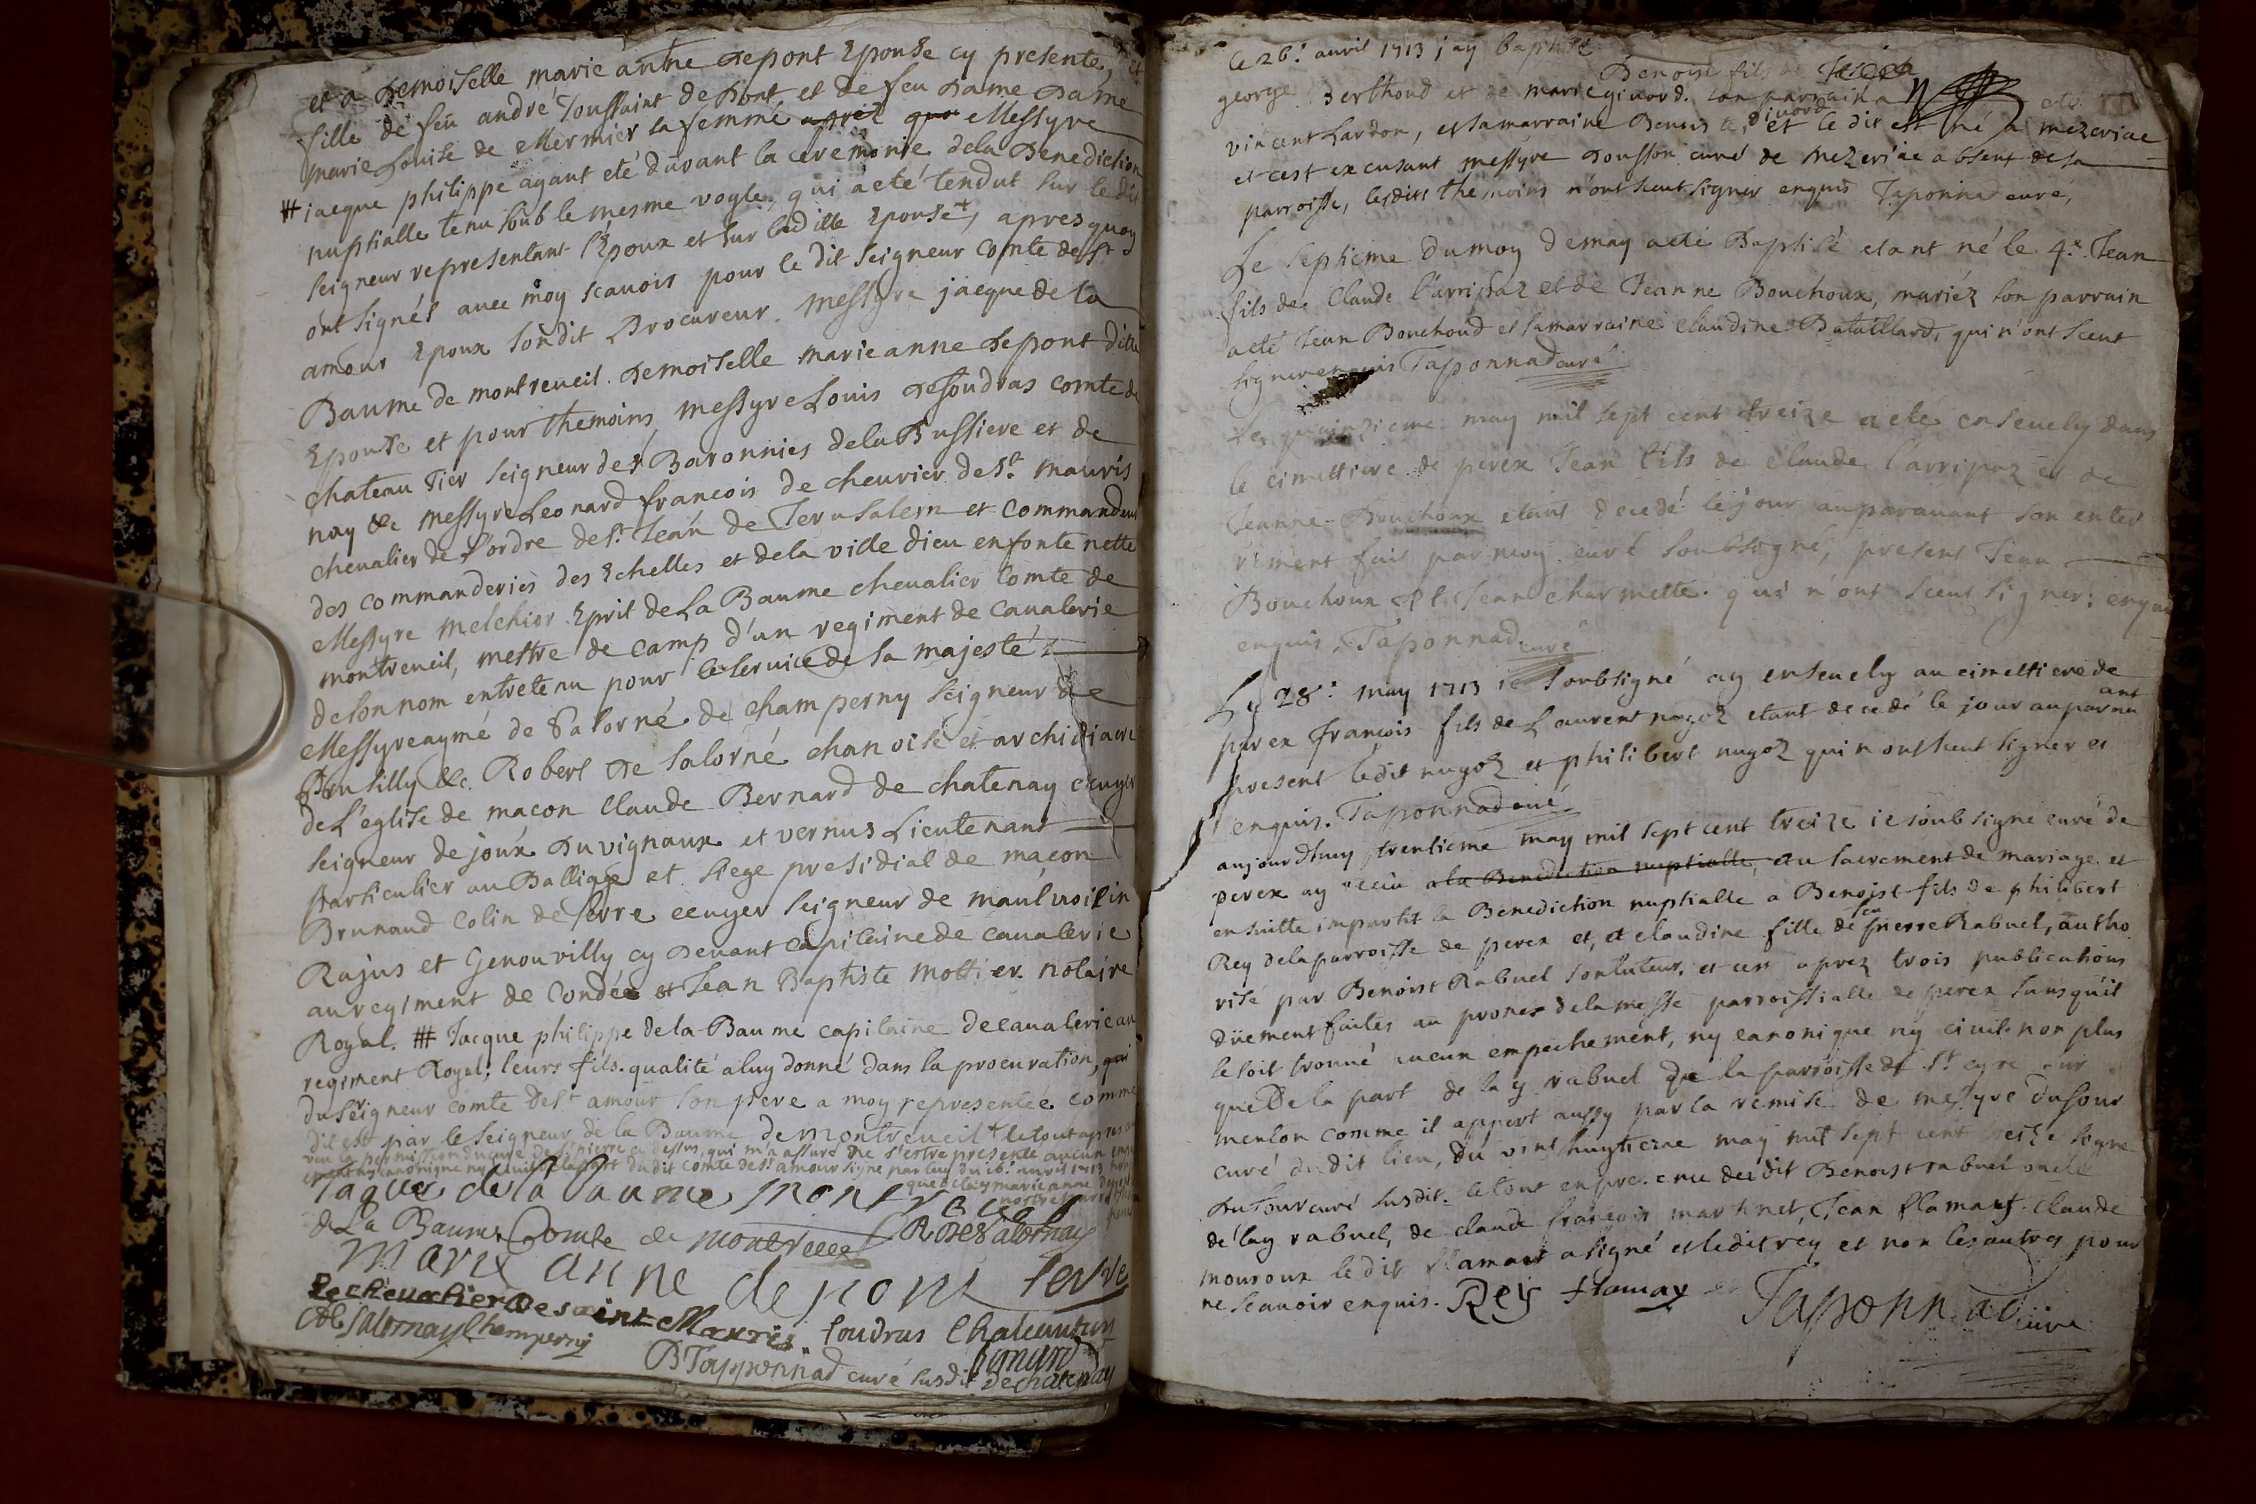 et a demoiselle marie anne depont Epouse cy presente, et
fille de feu andré Toussaint de Pont et de feu dame dame
marie Louise de Mermier sa femme apréz quo Messyre
# iacque philippe ayant eté duvant la ceremonie dela Benediction
nuptialle tenu soub le mesme voyle, qui a eté tendut sur le dit
seigneur representant l'Epoux et sur ladille Epouse, apres quoy
ont signés avec moy scavoir pour le dit seigneur Comte de st
amour Epoux sondit Procureur Messyre jacque de la
Baume de montreueil. demoiselle marie anne depont ditte
Epouse et pour themoins messyre Louis defoudras comte de
chateau Tier seigneur des Baronnies dela Bussiere et de
nay &c messyre Leonard francois de cheurier de st. mauris
chevalier de l'ordre de st. Jean de Jerusalem et commandeur
des commanderies des Echelles et dela ville dieu enfonte nette
Messyre melchior Eprit de La Baume chevalier Comte de
montreueil, mestre de camp d'un regiment de caualerie
de son nom entretenu pour le seruice de sa majesté
Messyre aymé de Salorné de champerny seigneur de
&c. Robert de Salorné chanoise et archidiacre
de L'eglise de macon Claude Bernard de chatenay ecuyer
seigneur de joux duvignaux et vernus Lieutenant
particulier au Balliage et siege presidial de macon
Brunaud Colin de serre ecuyer seigneur de maulvoisin
Rajus et Genouvilly cy devant capitaine de cavalerie
au regiment de Condée et Jean Baptiste mottier notaire
Royal. # Jacque philippe de la Baume capitaine de caualerie au
regiment Royal; leurs fils. qualité a luy donné dans la procuration, qui
du seigneur comte de st amour son pere a moy representée comme
dit est par le seigneur de la Baume de montreueil + le tout apres
Jaques de la Baume Montrevel
de La Baume Comte de montreuel R de Salornay
Marie anne de pont Serre
Le chevalier de saint Mauris foudras Chateautier
de Salornay Champerny
B Tapponnad curé susdit Bernard de chatenay
le 26. auril 1713 jay baptisé
Benoist fils de
george Berthoud et de marie givord. son parrain a
vincent Lardon, et sa marraine Benois te givord et le dit est né a mezeriac
et cest excusant messyre dousson curé de mezeriac absent de sa
parroisse, lesdits themoins n'ont sceut signer enquis Taponnad curé,
Le septieme du moy de may a eté Baptisé etant né le 4e. Jean
fils de Claude Carripaz et de Jeanne Bouchoux, mariéz son parrain
a eté Jean Bouchoud et sa marraine claudine Bataillard, qui n'ont sceut
signer enquis Taponnad curé
Le quinzieme may mil sept cent treize a eté enseuely dans
le cimettiere de perex Jean fils de Claude Carripaz et de
Jeanne Bouchoux etant decedé le jour auparauant son enter
rement fait par moy curé soubsigné, present Jean
Bouchoux et Jean charmette. qui n'ont sceut signer: enquis
enquis, Taponnad curé
Le 28. may 1713 ie soubsigné ay enseuely au cimettiere de
perex francois fils de Laurent nugoz etant decedé le jour auparauant
present ledit nugoz et philibert nugoz qui n'ont sceut signer et
enquis. Taponnad curé
aujourdhuy trentieme may mil sept cent treize ie soubsigné curé de
perex ay receu a la Benediction nuptialle, au sacrement de mariage et
en suitte impartit la Benediction nuptialle a Benoist fils de philibert
Rey de la parroisse de perex et, a claudine fille de feu pierre Rabuel, autho
risé par Benoist Rabuel son tuteur, et cest aprez trois publications
düement faites au prones de la messe parroissialle de perex sans qu'il
se soit trouué aucun empechement, ny canonique ny ciuil. non plus
que De la part de la q rabuel de la parroisse de st cyre sur
menton comme il appert aussy par la remise de messyre dufour
curé du dit lieu, du vint huytieme may mil sept cent treize signé
dufour curé susdit. le tout en presence dudit Benoist rabuel oncle
de lay rabuel, de claude francois martinet, Jean flamand claude
mousoux le dit flamand a signé et ledit rey et non les autres pour
ne scauoir enquis. Rey flamax Tapponnad curé